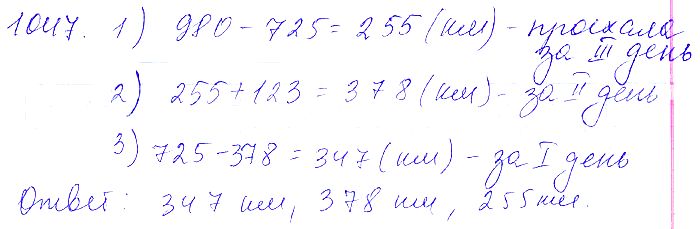 1047. 1) 980 - 725 = 255 (км) - проехала
за III день
2) 255 + 123 = 378 (км) - за II день
3) 725 - 378 = 347 (км) - за I день
Ответ: 347 км, 378 км, 255 км.